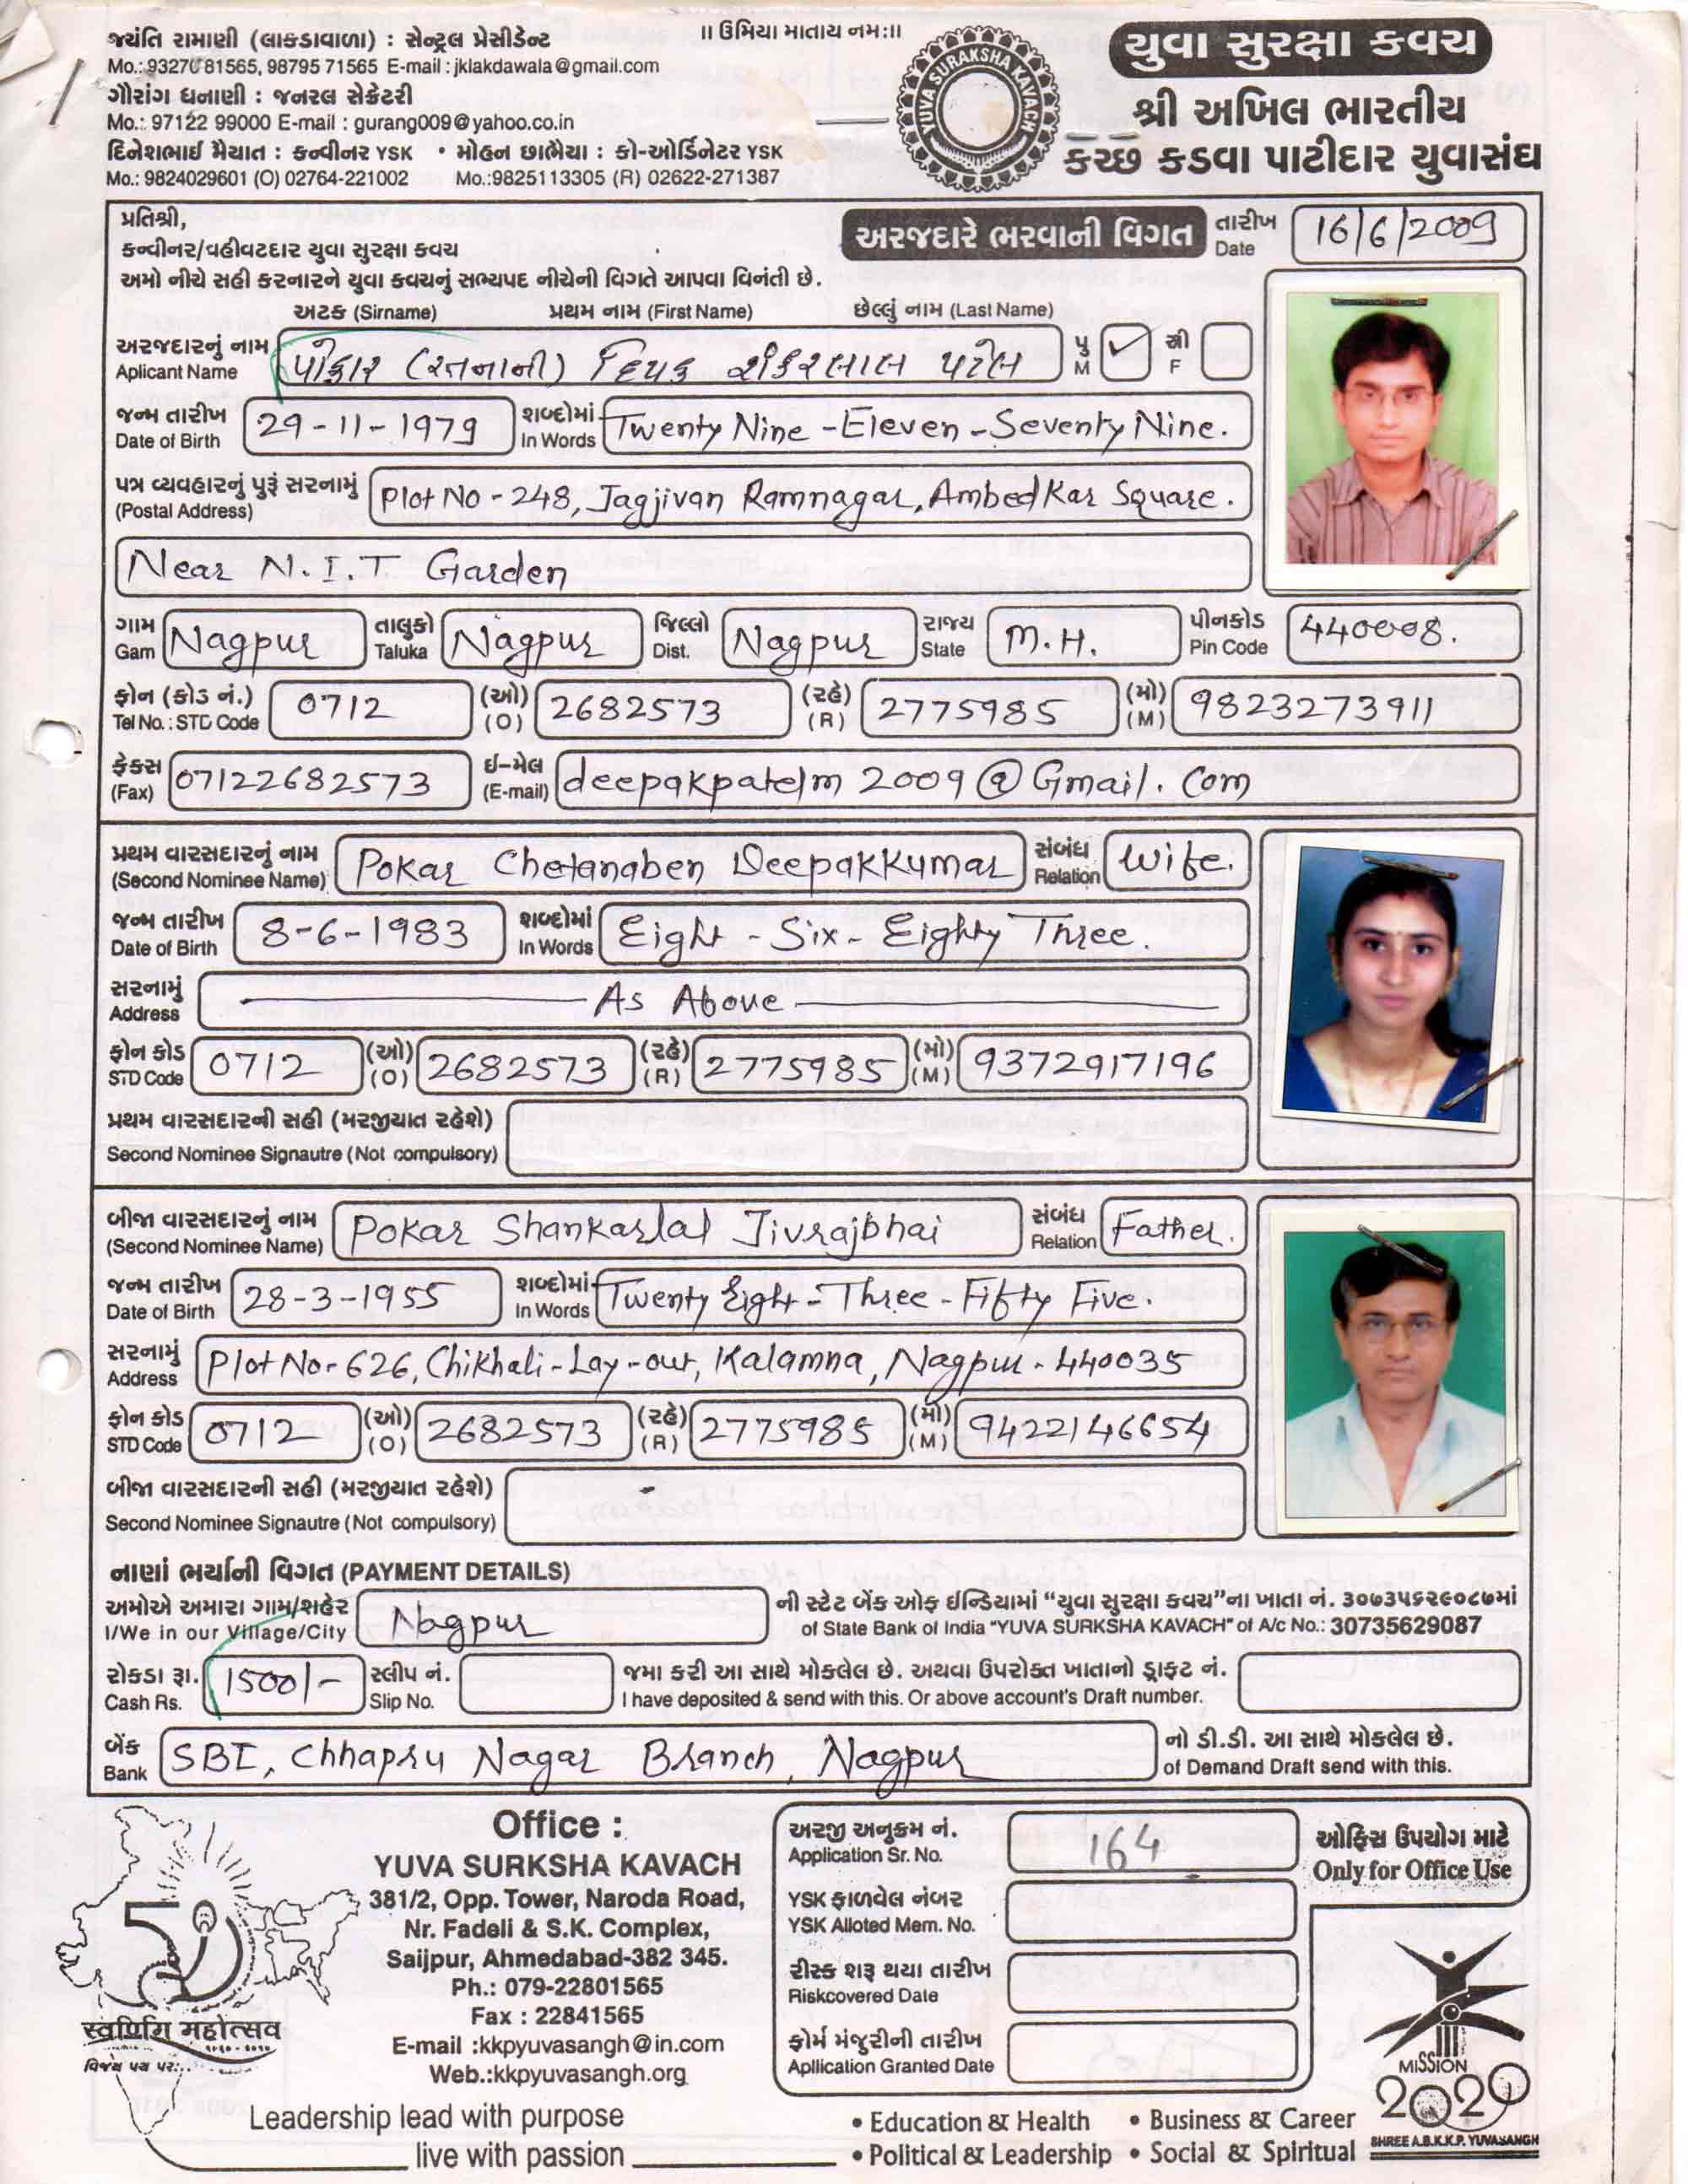 જયંતિ રામાણી (લાકડાવાળા) : સેન્ટ્રલ પ્રેસીડેન્ટ
Mo.: 93270 81565, 98795 71565 E-mail : jklakdawala@gmail.com
ગૌરાંગ ધનાણી : જનરલ સેક્રેટરી
Mo.: 97122 99000 E-mail : gurang009@yahoo.co.in
દિનેશભાઈ મૈયાત : કન્વીનર YSK • મોહન છાભૈયા : કો-ઓર્ડિનેટર YSK
Mo.: 9824029601 (O) 02764-221002 Mo.:9825113305 (R) 02622-271387
॥ ઉમિયા માતાય નમઃ॥
YUVA SURAKSHA KAVACH
યુવા સુરક્ષા કવચ
શ્રી અખિલ ભારતીય
કચ્છ કડવા પાટીદાર યુવાસંઘ
પ્રતિશ્રી,
કન્વીનર/વહીવટદાર યુવા સુરક્ષા કવચ
અરજદારે ભરવાની વિગત
તારીખ Date 16/6/2009
અમો નીચે સહી કરનારને યુવા કવચનું સભ્યપદ નીચેની વિગતે આપવા વિનંતી છે.
અટક (Sirname) પ્રથમ નામ (First Name) છેલ્લું નામ (Last Name)
અરજદારનું નામ Aplicant Name પોકાર (રતનાની) દિપક શંકરલાલ પટેલ પુ M ✓ સ્રી F
જન્મ તારીખ Date of Birth 29-11-1979 શબ્દોમાં In Words Twenty Nine - Eleven - Seventy Nine.
પત્ર વ્યવહારનું પુરૂં સરનામું (Postal Address) Plot No - 248, Jagjivan Ramnagar, Ambedkar Square.
Near N.I.T Garden
ગામ Gam Nagpur તાલુકો Taluka Nagpur જિલ્લો Dist. Nagpur રાજ્ય State M.H. પીનકોડ Pin Code 440008.
ફોન (કોડ નં.) Tel No.: STD Code 0712 (ઓ) (O) 2682573 (રહે) (R) 2775985 (મો) (M) 9823273911
ફેક્સ (Fax) 07122682573 ઈ-મેલ (E-mail) deepakpatelm2009@Gmail.Com
પ્રથમ વારસદારનું નામ (Second Nominee Name) Pokar Chetanaben Deepakkumar સંબંધ Relation Wife.
જન્મ તારીખ Date of Birth 8-6-1983 શબ્દોમાં In Words Eight - Six - Eighty Three.
સરનામું Address As Above
ફોન કોડ STD Code 0712 (ઓ) (O) 2682573 (રહે) (R) 2775985 (મો) (M) 9372917196
પ્રથમ વારસદારની સહી (મરજીયાત રહેશે)
Second Nominee Signautre (Not compulsory)
બીજા વારસદારનું નામ (Second Nominee Name) Pokar Shankarlal Jivrajbhai સંબંધ Relation Father.
જન્મ તારીખ Date of Birth 28-3-1955 શબ્દોમાં In Words Twenty Eight - Three - Fifty Five.
સરનામું Address Plot No- 626, Chikhali-Lay-out, Kalamna, Nagpur - 440035
ફોન કોડ STD Code 0712 (ઓ) (O) 2682573 (રહે) (R) 2775985 (મો) (M) 9422146654
બીજા વારસદારની સહી (મરજીયાત રહેશે)
Second Nominee Signautre (Not compulsory)
નાણાં ભર્યાની વિગત (PAYMENT DETAILS)
અમોએ અમારા ગામ/શહેર I/We in our Village/City Nagpur ની સ્ટેટ બેંક ઓફ ઈન્ડિયામાં “યુવા સુરક્ષા કવચ”ના ખાતા નં. ૩૦૭૩૫૬૨૯૦૮૭માં
of State Bank of India "YUVA SURKSHA KAVACH" of A/c No.: 30735629087
રોકડા રૂા. Cash Rs. 1500/- સ્લીપ નં. Slip No. જમા કરી આ સાથે મોકલેલ છે. અથવા ઉપરોક્ત ખાતાનો ડ્રાફ્ટ નં.
I have deposited & send with this. Or above account's Draft number.
બેંક Bank SBI, Chhapru Nagar Branch, Nagpur નો ડી.ડી. આ સાથે મોકલેલ છે.
of Demand Draft send with this.
Office :
YUVA SURKSHA KAVACH
381/2, Opp. Tower, Naroda Road,
Nr. Fadeli & S.K. Complex,
Saijpur, Ahmedabad-382 345.
Ph.: 079-22801565
Fax : 22841565
E-mail :kkpyuvasangh@in.com
Web.:kkpyuvasangh.org
50
स्वर्णिम महोत्सव
૧૯૬૦ - ૨૦૧૦
વિજય પથ પર...
અરજી અનુક્રમ નં. Application Sr. No. 164
ઓફિસ ઉપયોગ માટે
Only for Office Use
YSK ફાળવેલ નંબર
YSK Alloted Mem. No.
રીસ્ક શરૂ થયા તારીખ
Riskcovered Date
ફોર્મ મંજુરીની તારીખ
Apllication Granted Date
MISSION
2020
SHREE A.B.K.K.P. YUVASANGH
Leadership lead with purpose
live with passion
• Education & Health • Business & Career
• Political & Leadership • Social & Spiritual